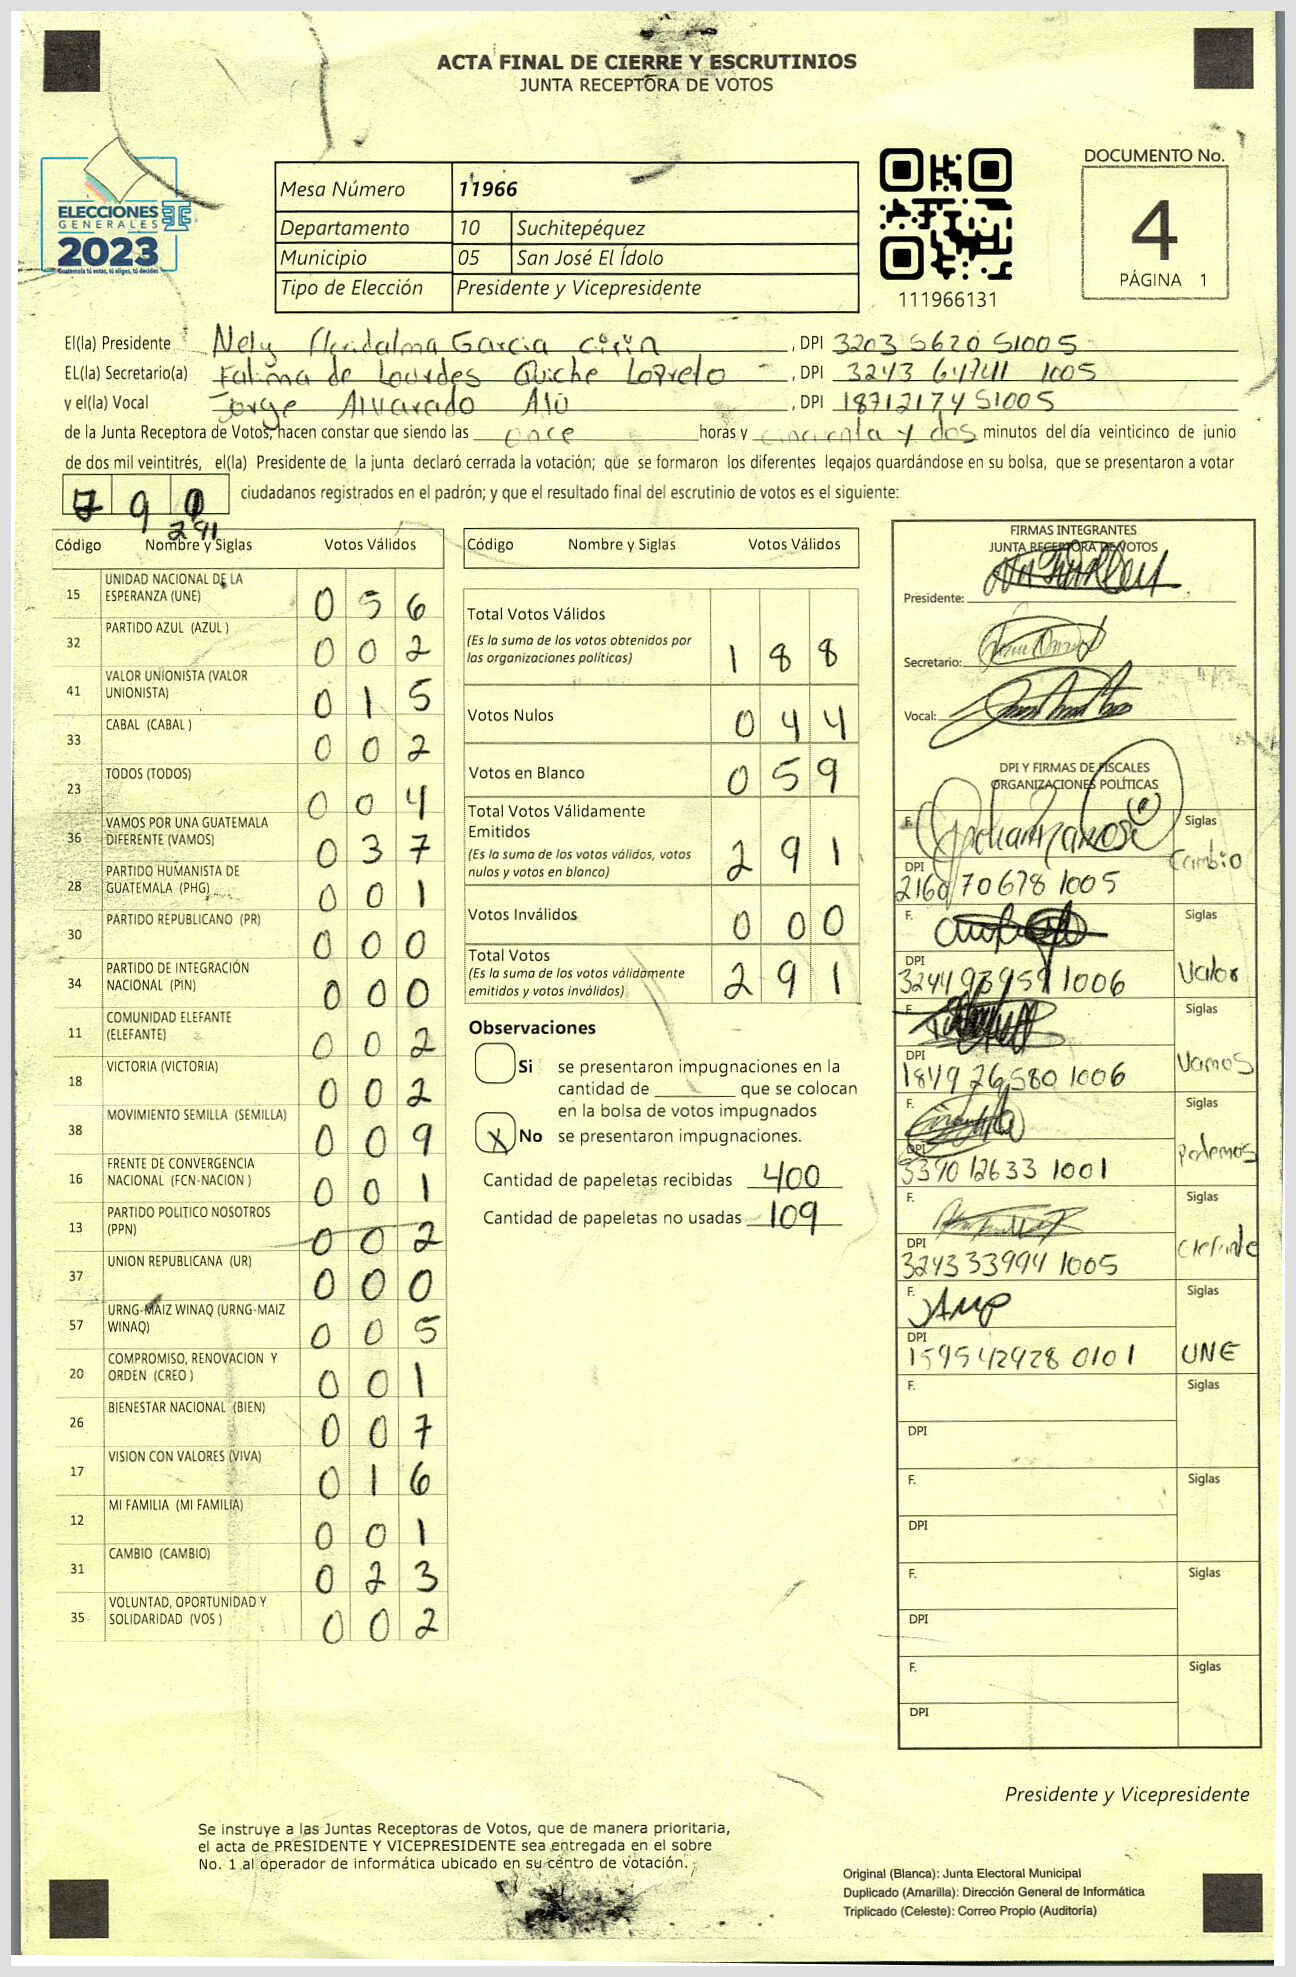 ACTA FINAL DE CIERRE Y ESCRUTINIOS
JUNTA RECEPTORA DE VOTOS
ELECCIONES
GENERALES
2023
Guatemala tú votas, tú eliges, tú decides
Mesa Número 11966
Departamento 10 Suchitepéquez
Municipio 05 San José El Ídolo
Tipo de Elección Presidente y Vicepresidente
111966131
DOCUMENTO No.
4
PÁGINA 1
El(la) Presidente Nely Floridalma Garcia , DPI 3203 5620 51005
EL(la) Secretario(a) Fatima de Lourdes Quiche Loreto , DPI 3243 64741 1005
y el(la) Vocal Jorge Alvarado , DPI 187121745 1005
de la Junta Receptora de Votos, hacen constar que siendo las once horas y cincuenta y dos minutos del día veinticinco de junio
de dos mil veintitrés, el(la) Presidente de la junta declaró cerrada la votación; que se formaron los diferentes legajos guardándose en su bolsa, que se presentaron a votar
ciudadanos registrados en el padrón; y que el resultado final del escrutinio de votos es el siguiente:
291
Código Nombre y Siglas Votos Válidos
15 UNIDAD NACIONAL DE LA ESPERANZA (UNE) 0 5 6
32 PARTIDO AZUL (AZUL ) 0 0 2
41 VALOR UNIONISTA (VALOR UNIONISTA) 0 1 5
33 CABAL (CABAL ) 0 0 2
23 TODOS (TODOS) 0 0 4
36 VAMOS POR UNA GUATEMALA DIFERENTE (VAMOS) 0 3 7
28 PARTIDO HUMANISTA DE GUATEMALA (PHG) 0 0 1
30 PARTIDO REPUBLICANO (PR) 0 0 0
34 PARTIDO DE INTEGRACIÓN NACIONAL (PIN) 0 0 0
11 COMUNIDAD ELEFANTE (ELEFANTE) 0 0 2
18 VICTORIA (VICTORIA) 0 0 2
38 MOVIMIENTO SEMILLA (SEMILLA) 0 0 9
16 FRENTE DE CONVERGENCIA NACIONAL (FCN-NACION ) 0 0 1
13 PARTIDO POLITICO NOSOTROS (PPN) 0 0 2
37 UNION REPUBLICANA (UR) 0 0 0
57 URNG-MAIZ WINAQ (URNG-MAIZ WINAQ) 0 0 5
20 COMPROMISO, RENOVACION Y ORDEN (CREO ) 0 0 1
26 BIENESTAR NACIONAL (BIEN) 0 0 7
17 VISION CON VALORES (VIVA) 0 1 6
12 MI FAMILIA (MI FAMILIA) 0 0 1
31 CAMBIO (CAMBIO) 0 2 3
35 VOLUNTAD, OPORTUNIDAD Y SOLIDARIDAD (VOS ) 0 0 2
Código Nombre y Siglas Votos Válidos
Total Votos Válidos 1 8 8
(Es la suma de los votos obtenidos por
las organizaciones políticas)
Votos Nulos 0 4 4
Votos en Blanco 0 5 9
Total Votos Válidamente
Emitidos 2 9 1
(Es la suma de los votos válidos, votos
nulos y votos en blanco)
Votos Inválidos 0 0 0
Total Votos 2 9 1
(Es la suma de los votos válidamente
emitidos y votos inválidos)
Observaciones
Si se presentaron impugnaciones en la
cantidad de ________ que se colocan
en la bolsa de votos impugnados
X No se presentaron impugnaciones.
Cantidad de papeletas recibidas 400
Cantidad de papeletas no usadas 109
FIRMAS INTEGRANTES
JUNTA RECEPTORA DE VOTOS
Presidente:
Secretario:
Vocal:
DPI Y FIRMAS DE FISCALES
ORGANIZACIONES POLÍTICAS
F. Siglas
Cambio
DPI
2160 70678 1005
F. Siglas
DPI Valor
3244 93959 1006
F. Siglas
DPI Vamos
1849 76580 1006
F. Siglas
DPI Podemos
3390 12633 1001
F. Siglas
DPI Elefante
3243 33994 1005
F. Siglas
DPI
1595 42928 0101 UNE
F. Siglas
DPI
F. Siglas
DPI
F. Siglas
DPI
F. Siglas
DPI
Presidente y Vicepresidente
Se instruye a las Juntas Receptoras de Votos, que de manera prioritaria,
el acta de PRESIDENTE Y VICEPRESIDENTE sea entregada en el sobre
No. 1 al operador de informática ubicado en su centro de votación.
Original (Blanca): Junta Electoral Municipal
Duplicado (Amarilla): Dirección General de Informática
Triplicado (Celeste): Correo Propio (Auditoría)